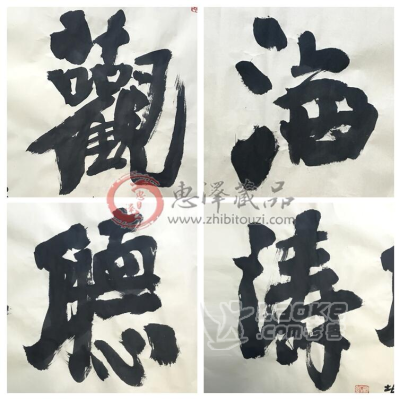 觀海
聽濤
惠澤藏品
www.zhibitouzi.com